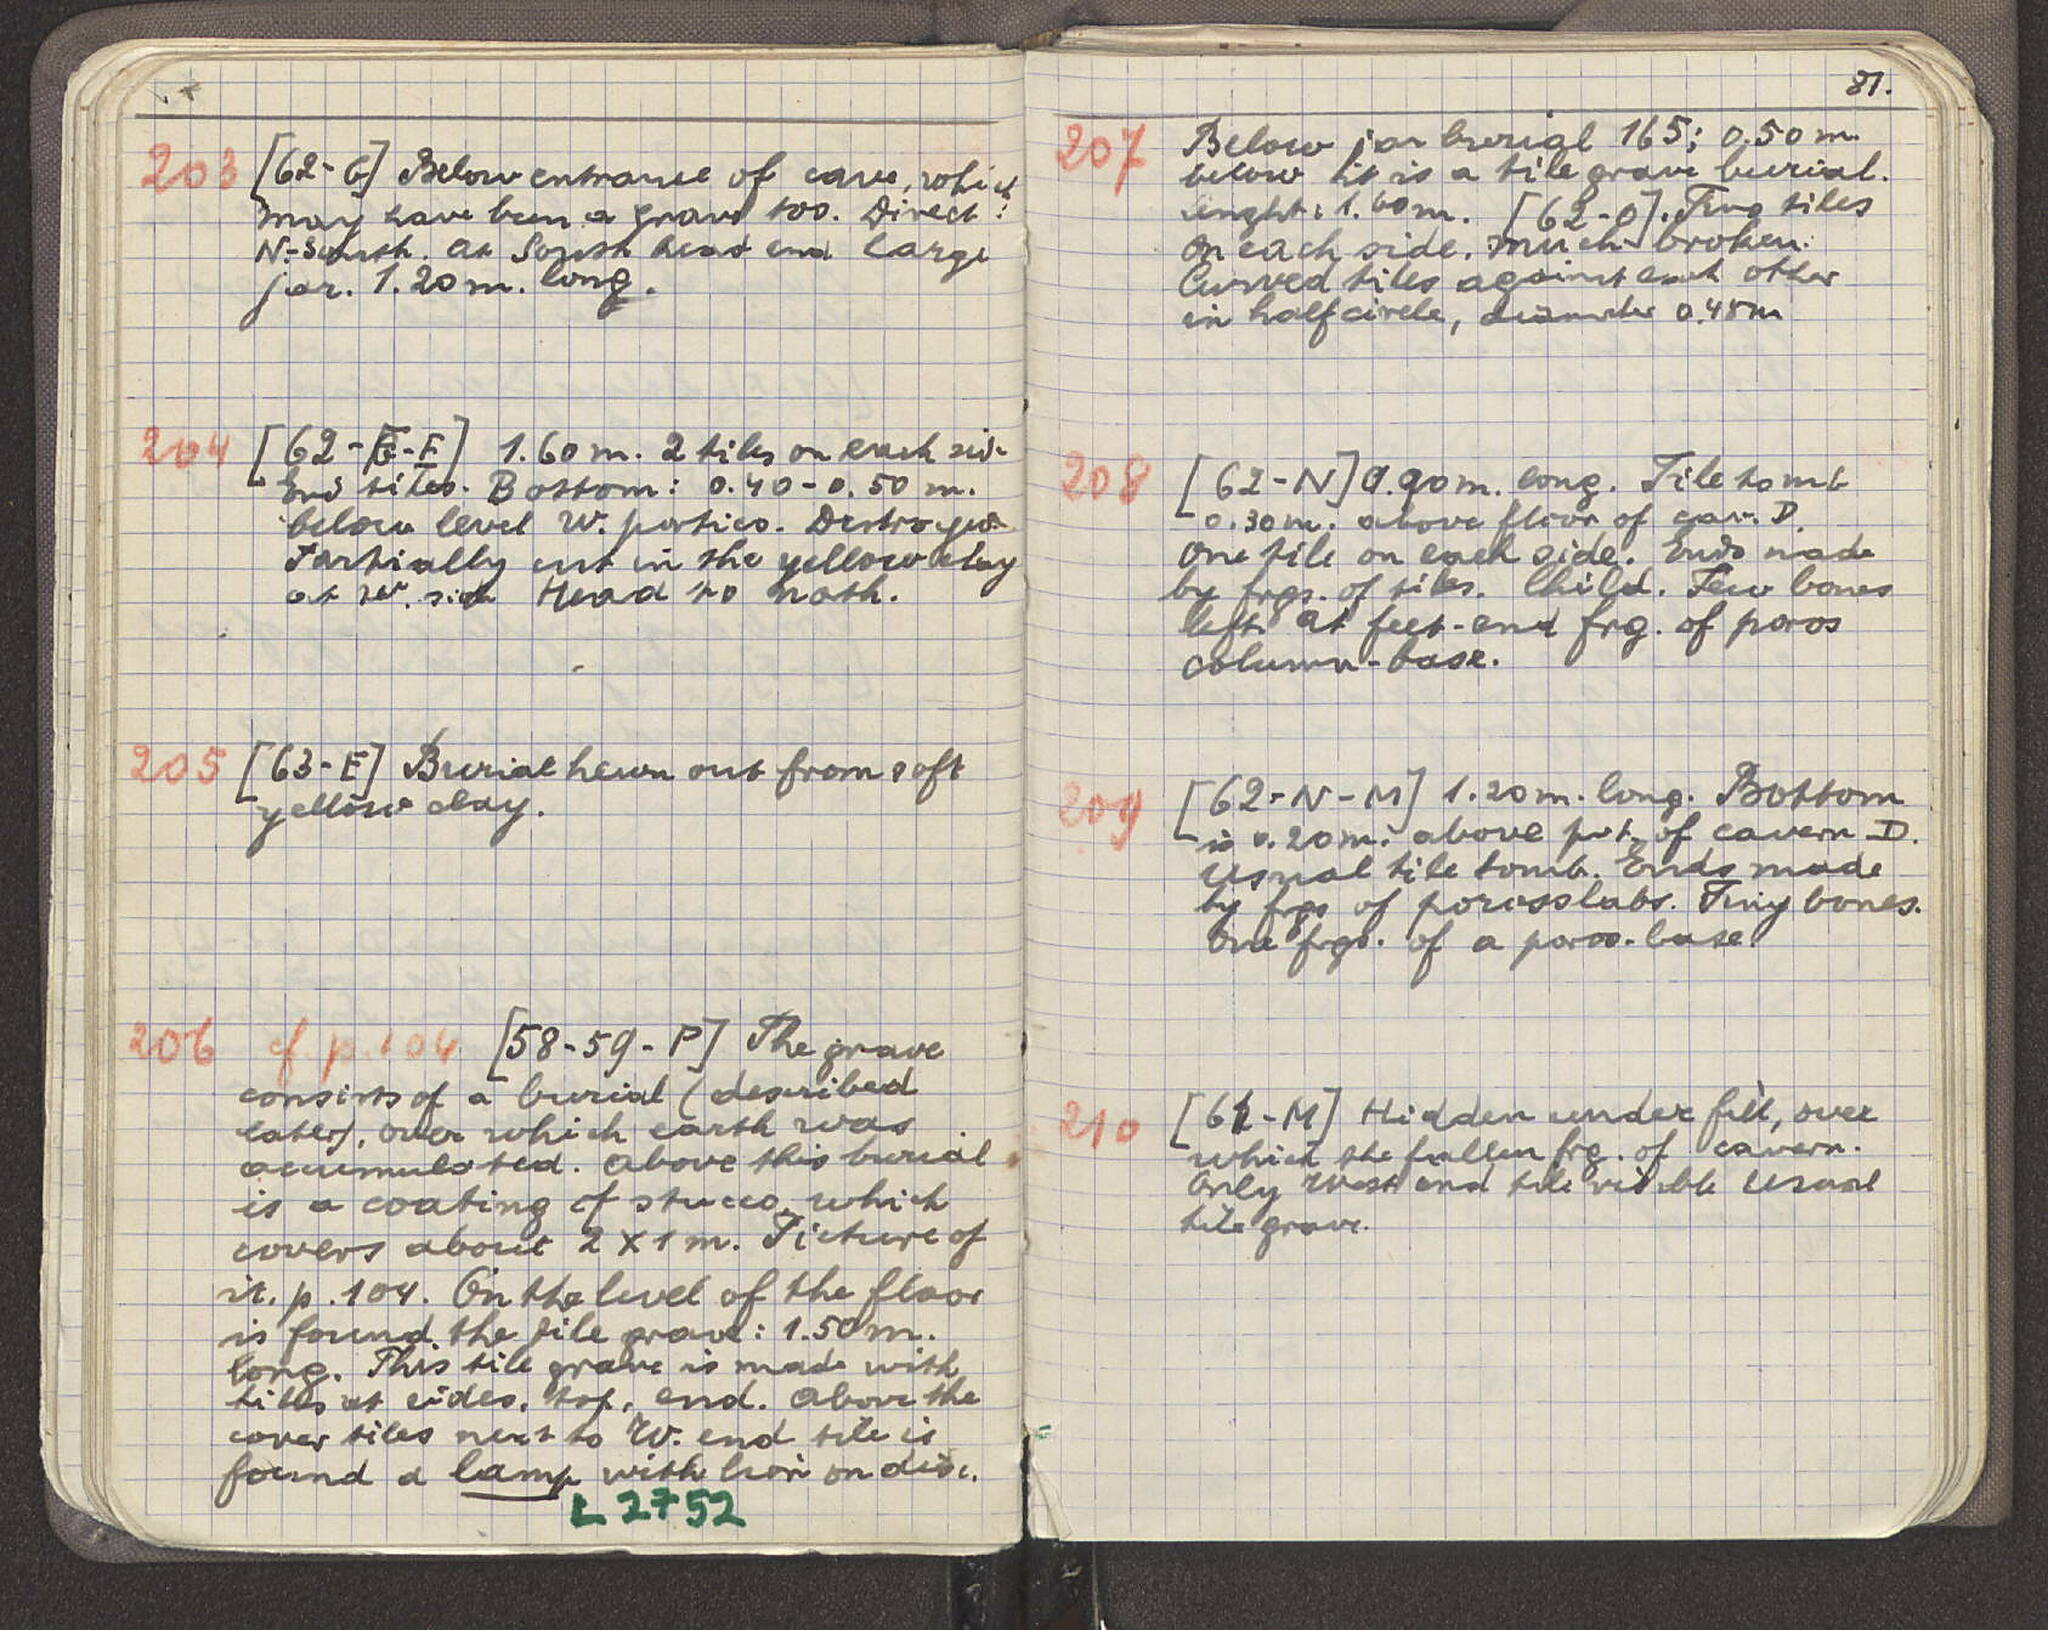 203 [62-G] Below entrance of cave, which
may have been a grave too. Direct:
N-South. At South head end large
jar. 1.20 m. long.
204 [62-E-F] 1.60 m. 2 tiles on each side
End tiles. Bottom: 0.40-0.50 m.
below level W. portico. Destroyed
Partially cut in the yellow clay
at W. side Head to North.
205 [63-E] Burial hewn out from soft
yellow clay.
206 cf. p. 104 [58-59-P] The grave
consists of a burial (described
later), over which earth was
accumulated. Above this burial
is a coating of stucco, which
covers about 2 x 1 m. Picture of
it. p. 104. On the level of the floor
is found the tile grave: 1.50 m.
long. This tile grave is made with
tiles at sides, top, end. Above the
cover tiles next to W. end tile is
found a lamp with lion on disc.
L 2752
81.
207 Below jar burial 165; 0.50 m.
below it is a tile grave burial.
lenght: 1.60 m. [62-O]. Two tiles
on each side. Much broken.
Curved tiles against each other
in half circle, diameter 0.48 m
208 [62-N] 0.90 m. long. Tile tomb
0.30 m. above floor of cav. D.
One tile on each side. Ends made
by frgs. of tiles. Child. Few bones
left. At feet-end frg. of poros
column-base.
209 [62-N-M] 1.20 m. long. Bottom
is 0.20 m. above pvt. of cavern D.
Usual tile tomb. Ends made
by frgs of porosslabs. Tiny bones.
One frgs. of a poros-base.
210 [61-M] Hidden under fill, over
which the fallen frg. of cavern.
Only West end tile visible Usual
tile grave.